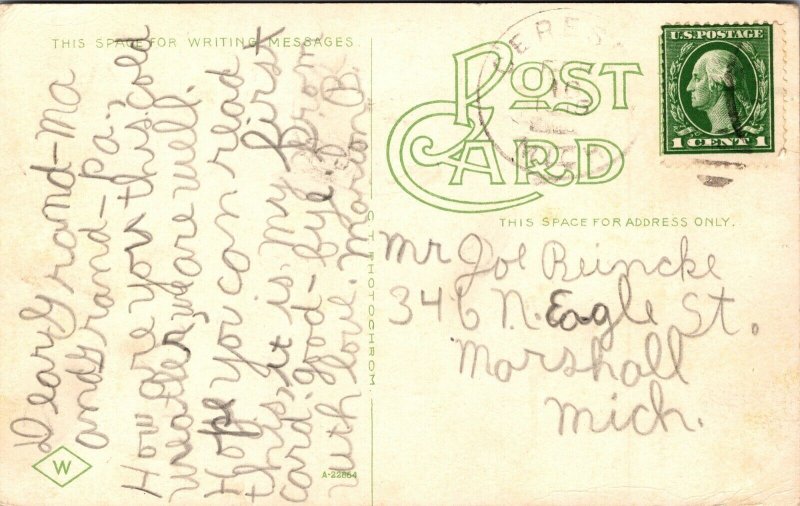 THIS SPACE FOR WRITING MESSAGES
Dear Grand-Ma
and Grand-Pa;
How are you this cold
weather, we are well.
Hope you can read
this, it is my first
card, good-bye. from
with love. Marion B.
W
A-22664
C.T. PHOTOCHROM
POST
CARD
THIS SPACE FOR ADDRESS ONLY.
U.S. POSTAGE
1 CENT 1
Mr Joe Reincke
346 N. Eagle St.
Marshall
Mich.